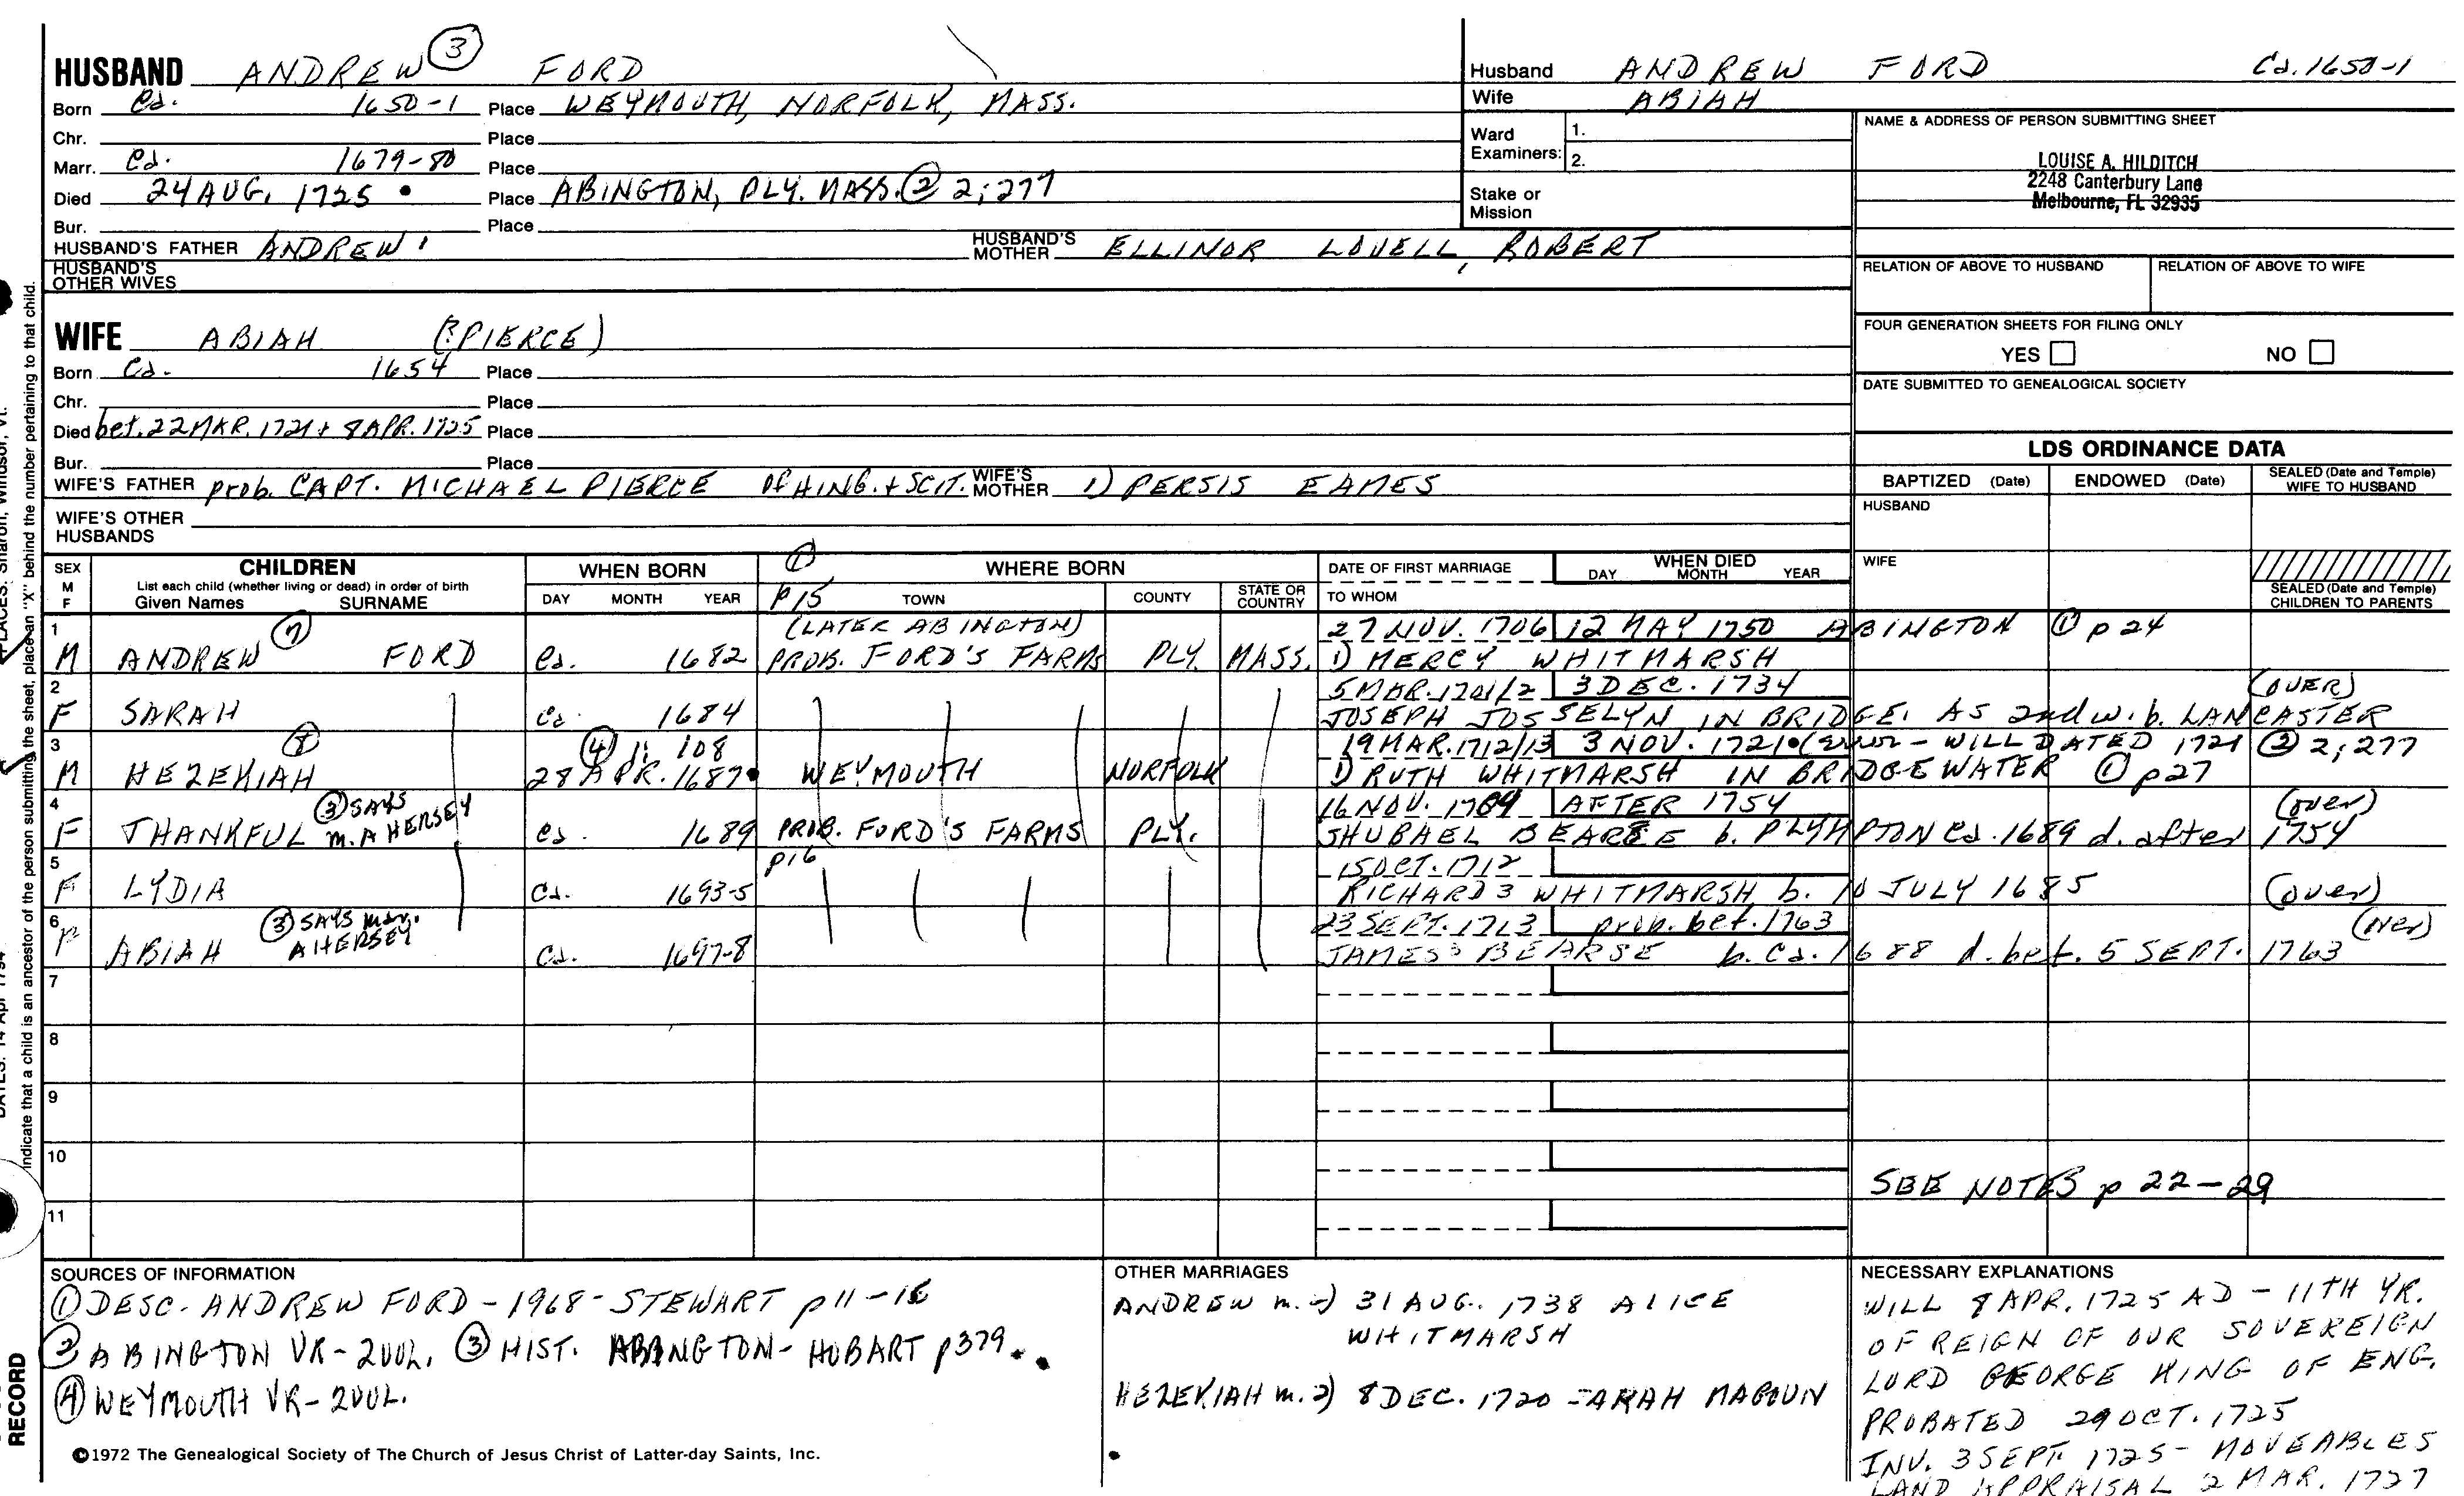 HUSBAND ANDREW ③ FORD
Born Ca. 1650-1 Place WEYMOUTH, NORFOLK, MASS.
Chr. Place
Marr. Ca. 1679-80 Place
Died 24 AUG. 1725 • Place ABINGTON, PLY. MASS. ② 2;277
Bur. Place
HUSBAND'S FATHER ANDREW' HUSBAND'S MOTHER ELLINOR LOVELL, ROBERT
HUSBAND'S OTHER WIVES
WIFE ABIAH (?PIERCE)
Born Ca. 1654 Place
Chr. Place
Died bet. 22 MAR. 1721 + 8 APR. 1725 Place
Bur. Place
WIFE'S FATHER prob. CAPT. MICHAEL PIERCE OF HING. + SCIT. WIFE'S MOTHER 1) PERSIS EAMES
WIFE'S OTHER HUSBANDS
Husband ANDREW FORD Ca. 1650-1
Wife ABIAH
Ward Examiners: 1.
2.
Stake or Mission
NAME & ADDRESS OF PERSON SUBMITTING SHEET
LOUISE A. HILDITCH
2248 Canterbury Lane
Melbourne, FL 32935
RELATION OF ABOVE TO HUSBAND RELATION OF ABOVE TO WIFE
FOUR GENERATION SHEETS FOR FILING ONLY
YES NO
DATE SUBMITTED TO GENEALOGICAL SOCIETY
LDS ORDINANCE DATA
BAPTIZED (Date) ENDOWED (Date) SEALED (Date and Temple) WIFE TO HUSBAND
HUSBAND
WIFE
SEALED (Date and Temple) CHILDREN TO PARENTS
SEX M F CHILDREN List each child (whether living or dead) in order of birth Given Names SURNAME
WHEN BORN DAY MONTH YEAR
① p15 WHERE BORN TOWN COUNTY STATE OR COUNTRY
DATE OF FIRST MARRIAGE TO WHOM
WHEN DIED DAY MONTH YEAR
1 ⑦ (LATER ABINGTON) 27 NOV. 1706 12 MAY 1750 ABINGTON ① p 24
M ANDREW FORD Ca. 1682 PROB. FORD'S FARMS PLY. MASS. 1) MERCY WHITMARSH
2 5 MAR. 1701/2 3 DEC. 1734 (OVER)
F SARAH Ca. 1684 JOSEPH JOSSELYN IN BRIDGE. AS 2nd w. b. LANCASTER
3 ⑧ ④ 1: 108 19 MAR. 1712/13 3 NOV. 1721 • (error - WILL DATED 1721 ② 2;277
M HEZEKIAH 28 APR. 1687 • WEYMOUTH NORFOLK 1) RUTH WHITMARSH IN BRIDGEWATER ① p27
4 ③ SAYS m. A HERSEY 16 NOV. 1709 AFTER 1754 (over)
F THANKFUL Ca. 1689 PROB. FORD'S FARMS PLY. SHUBAEL BEARSE b. PLYMPTON Ca. 1689 d. after 1754
5 p16 15 OCT. 1712
F LYDIA Ca. 1693-5 RICHARD 3 WHITMARSH b. 10 JULY 1685 (over)
6 ③ SAYS mar. A HERSEY 23 SEPT. 1713 prob. bet. 1763 (over)
F ABIAH Ca. 1697-8 JAMES 3 BEARSE b. Ca. 1688 d. bet. 5 SEPT. 1763
7
8
9
10
SEE NOTES p 22-29
11
SOURCES OF INFORMATION
① DESC. ANDREW FORD - 1968 - STEWART p 11-16
② ABINGTON VR - 2VOL. ③ HIST. ABINGTON - HOBART p379
④ WEYMOUTH VR - 2VOL.
OTHER MARRIAGES
ANDREW m. 2) 31 AUG. 1738 ALICE
WHITMARSH
HEZEKIAH m. 2) 8 DEC. 1720 SARAH MAGOUN
NECESSARY EXPLANATIONS
WILL 8 APR. 1725 AD - 11TH YR.
OF REIGN OF OUR SOVEREIGN
LORD GEORGE KING OF ENG.
PROBATED 29 OCT. 1725
INV. 3 SEPT. 1725 - MOVEABLES
LAND APPRAISAL 2 MAR. 1727
©1972 The Genealogical Society of The Church of Jesus Christ of Latter-day Saints, Inc.
indicate that a child is an ancestor of the person submitting the sheet, place an "X" behind the number pertaining to that child.
RECORD